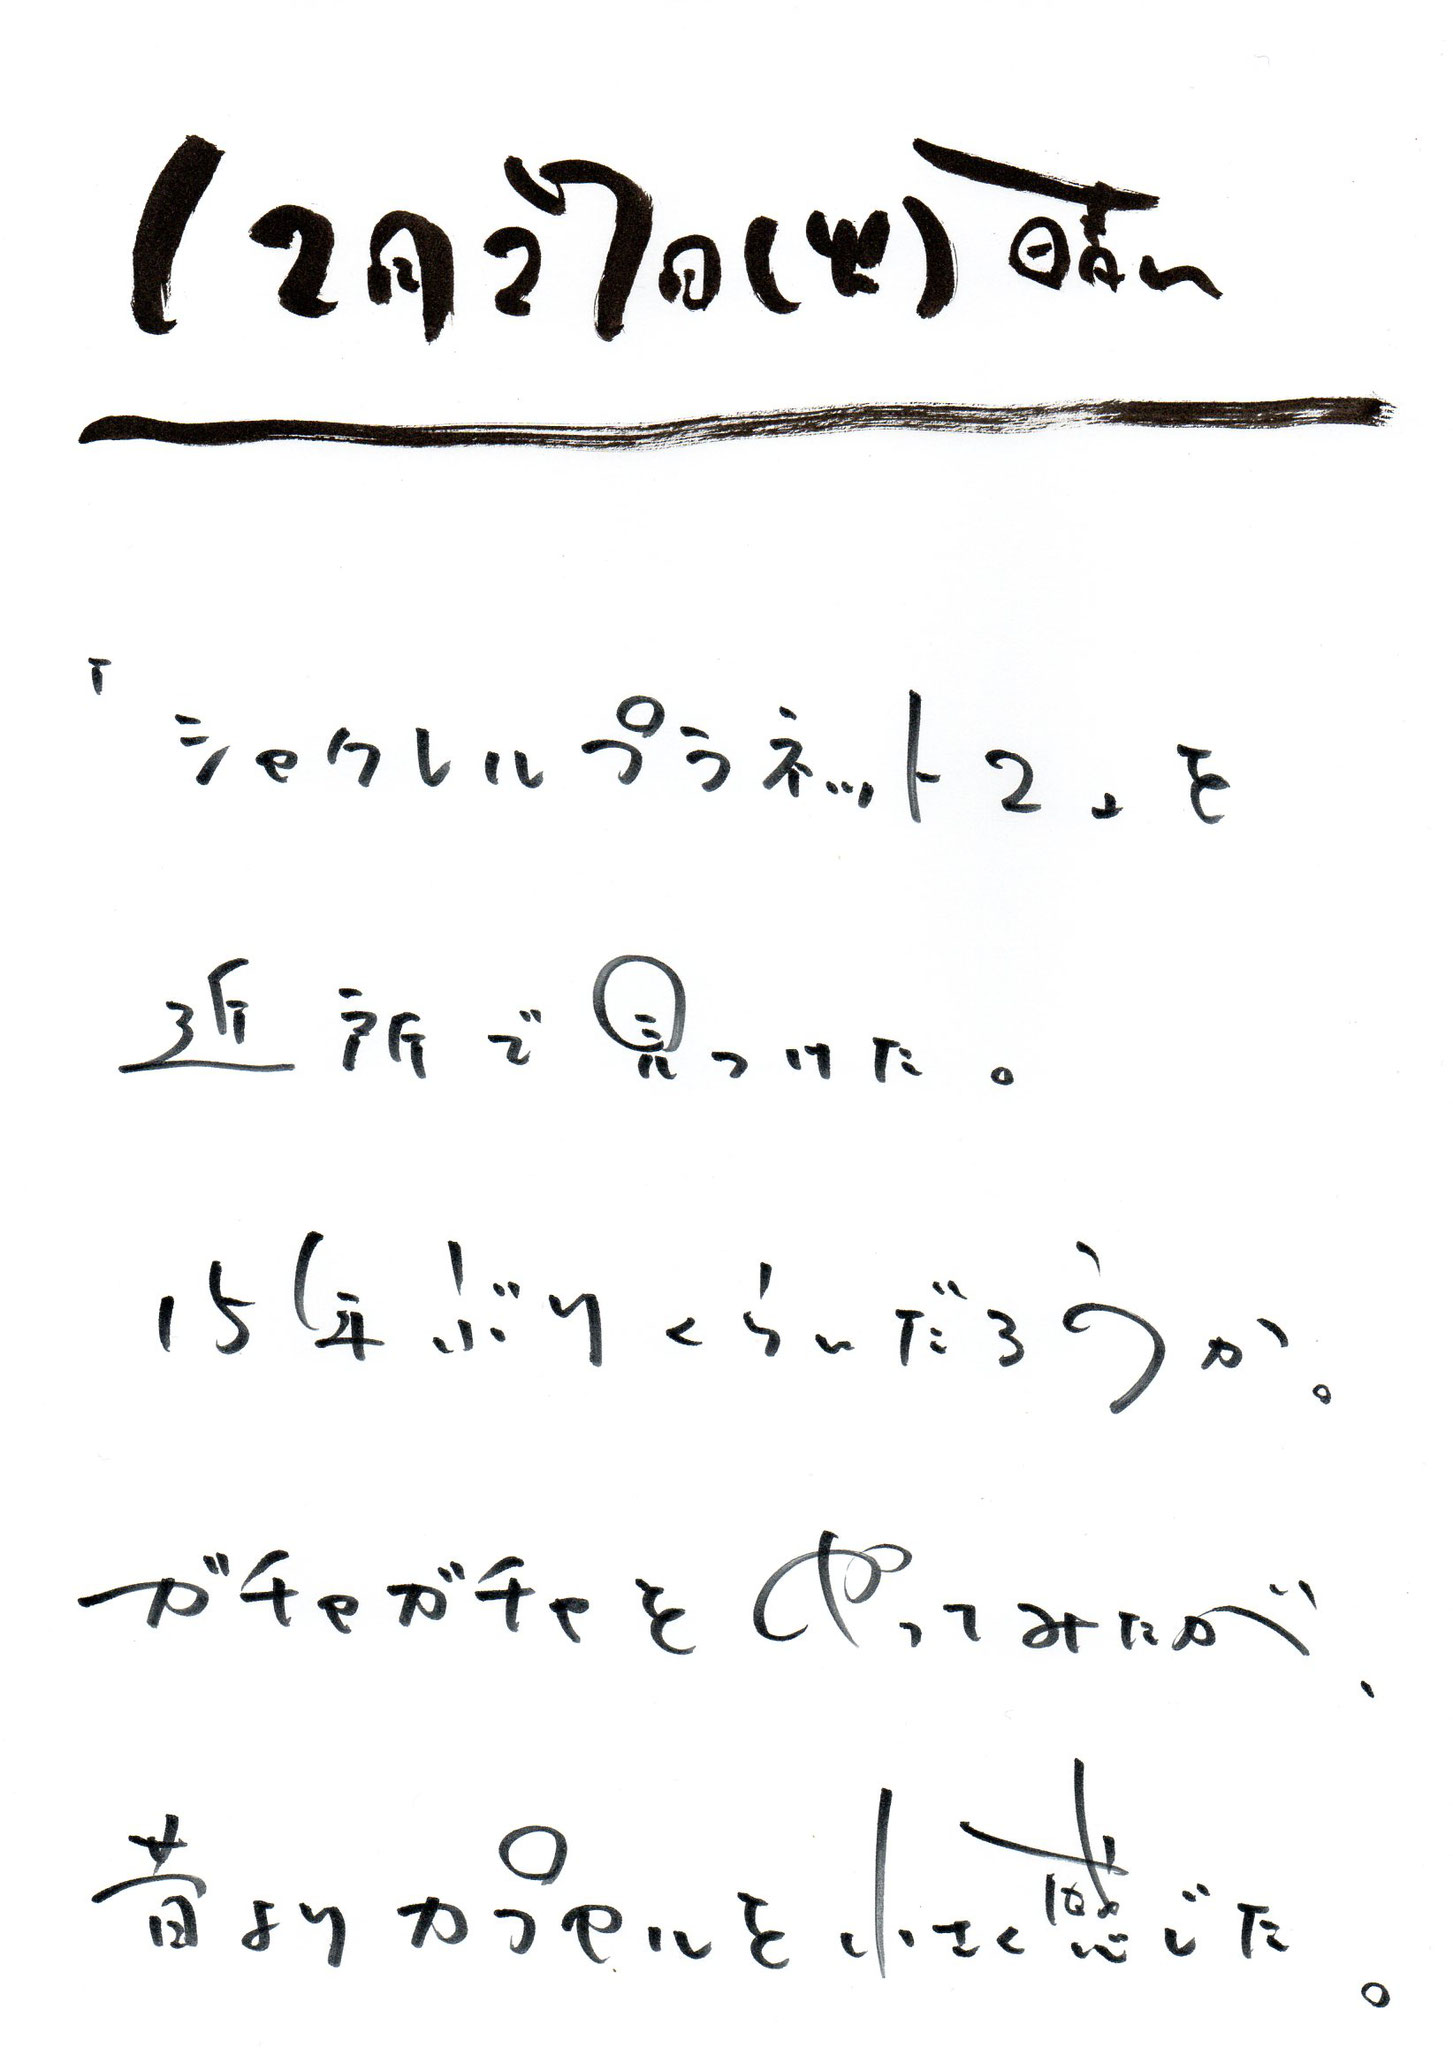 12月27日(火)晴れ
「シャクレルプラネット2」を
近所で見つけた。
15年ぶりくらいだろうか。
ガチャガチャをやってみたが、
昔よりカプセルを小さく感じた。